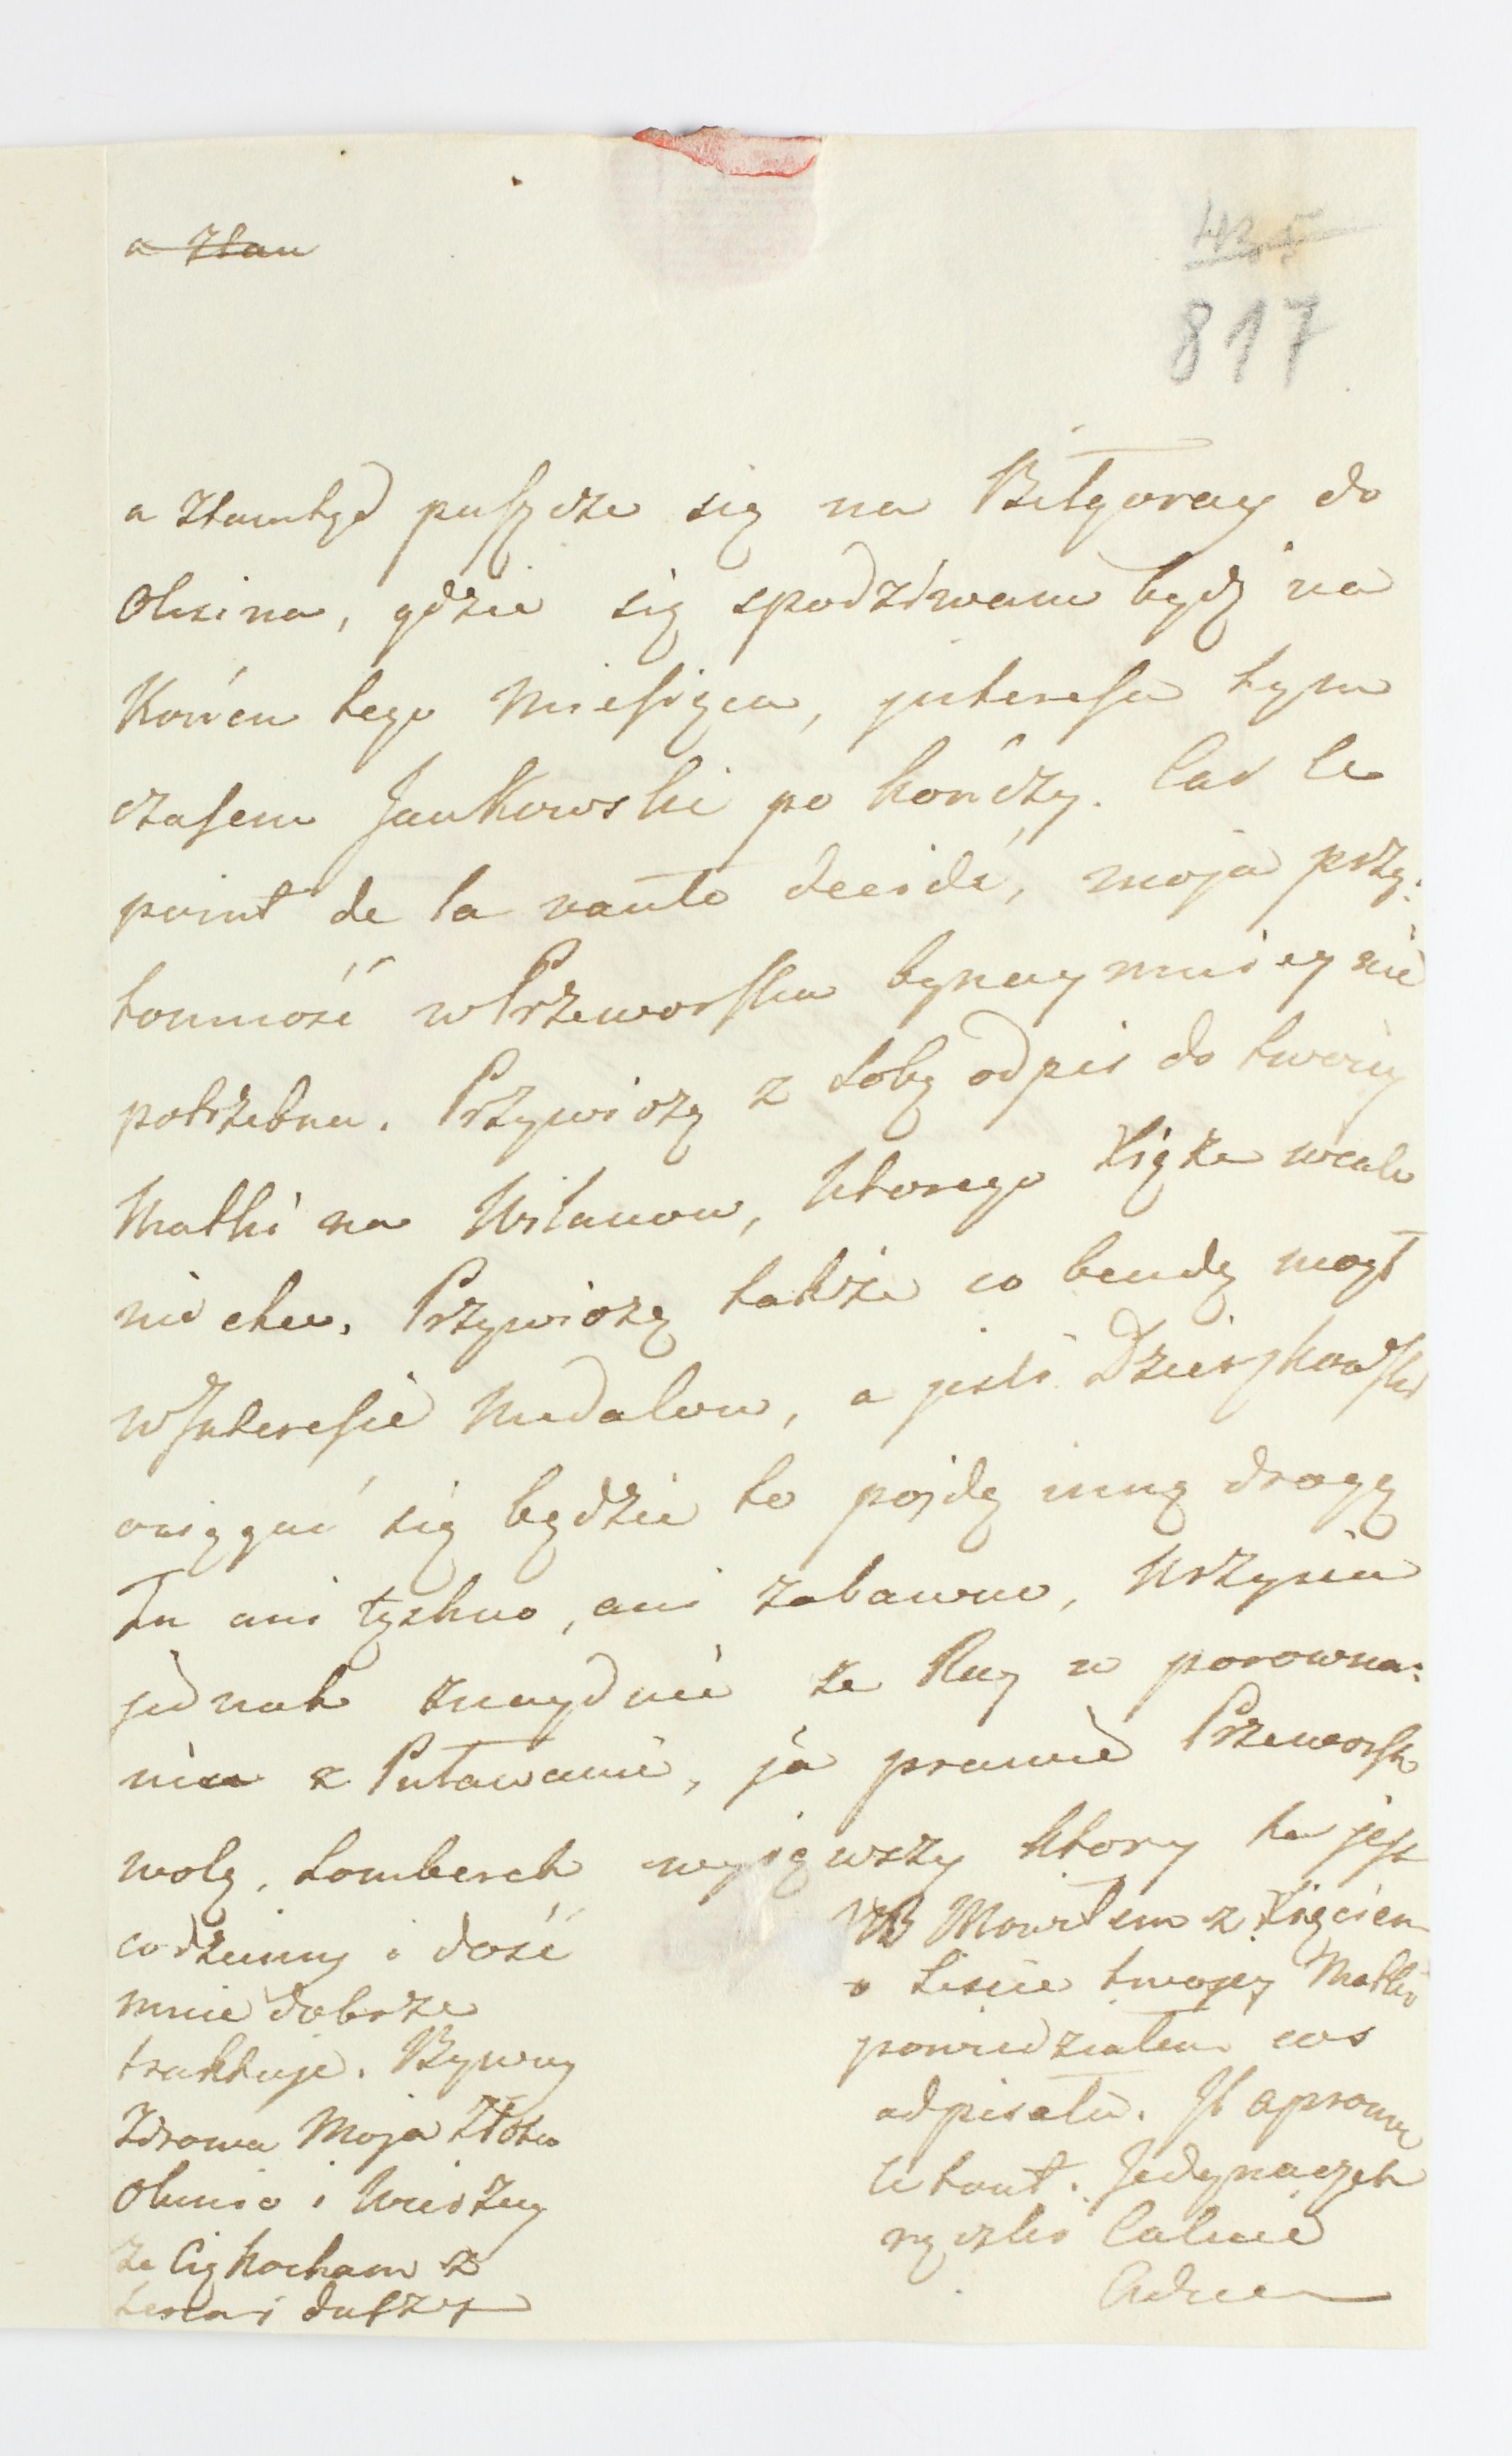 a Ztam
435
817
a Ztamtąd puszcze się na Biłgoray do
Olesina, gdzie się spodziwam bydź na
Końcu tego Miesiąca, jnteressa tym
czasem Jankowski po kończy. Car le
point de la vante decidé, moja przy:
tomność w Przeworsku bynaymniey nie
potrzebna. Przywiozę z sobą odpis do twoiey
Matki na Wilanow, Ktorego Xiąże wcale
nie chce. Przywiozę także co bendę mogł
w Jnteresie Medalow, a jeśli Dzierzkowski
ociągać się będzie to pojdę inną drogą
Tu ani tęskno, ani zabawno, Krzysia
jednak znayduie że Ray w porowna:
niu z Puławami, ja prawie Przeworsk
wolę. Lomberek wyjąwszy ktory tu jest
codzienny i dość
mnie dobrze
traktuje. Byway
Zdrowa Moja Złota
Olunio i Wierzay
że Cię Kocham z
serca i duszy
NB Mowiłem z Xięciem
o Liscie twojey Matki
powiedziałem cos
odpisała. Il aprouve
le tout. Jedynaczek
rączki Całuie